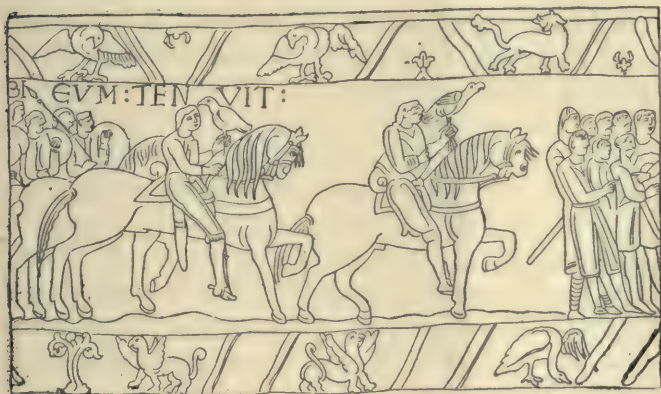 BI EVM:TEN VIT: